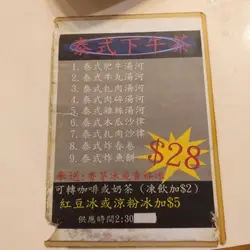 泰式下午茶
1. 泰式肥牛湯河
2. 泰式牛丸湯河
3. 泰式扎肉湯河
4. 泰式肉碎湯河
5. 泰式雞絲湯河
6. 泰式木瓜沙律
7. 泰式扎肉沙律
8. 泰式炸春卷
9. 泰式炸魚餅
$28
可轉咖啡或奶茶(凍飲加$2)
紅豆冰或涼粉冰加$5
供應時間2:30